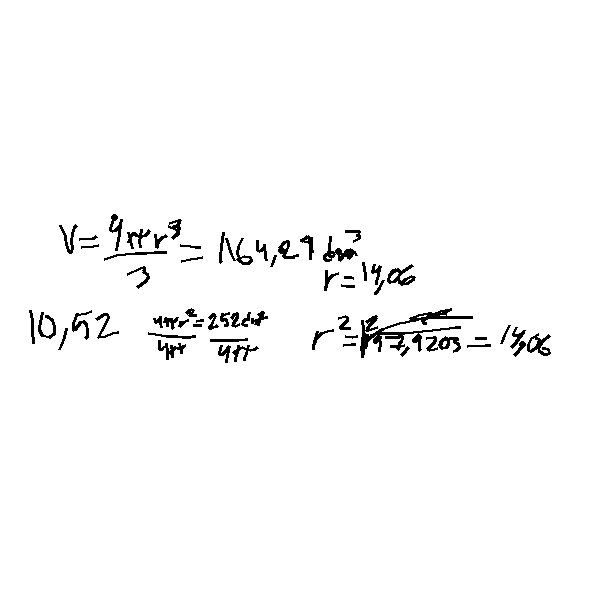 V = 4πr³/3 = 164,29 dm³
r = 14,06
10,52 4πr²/4π = 252dm²/4π r² = √197,9203 = 14,06